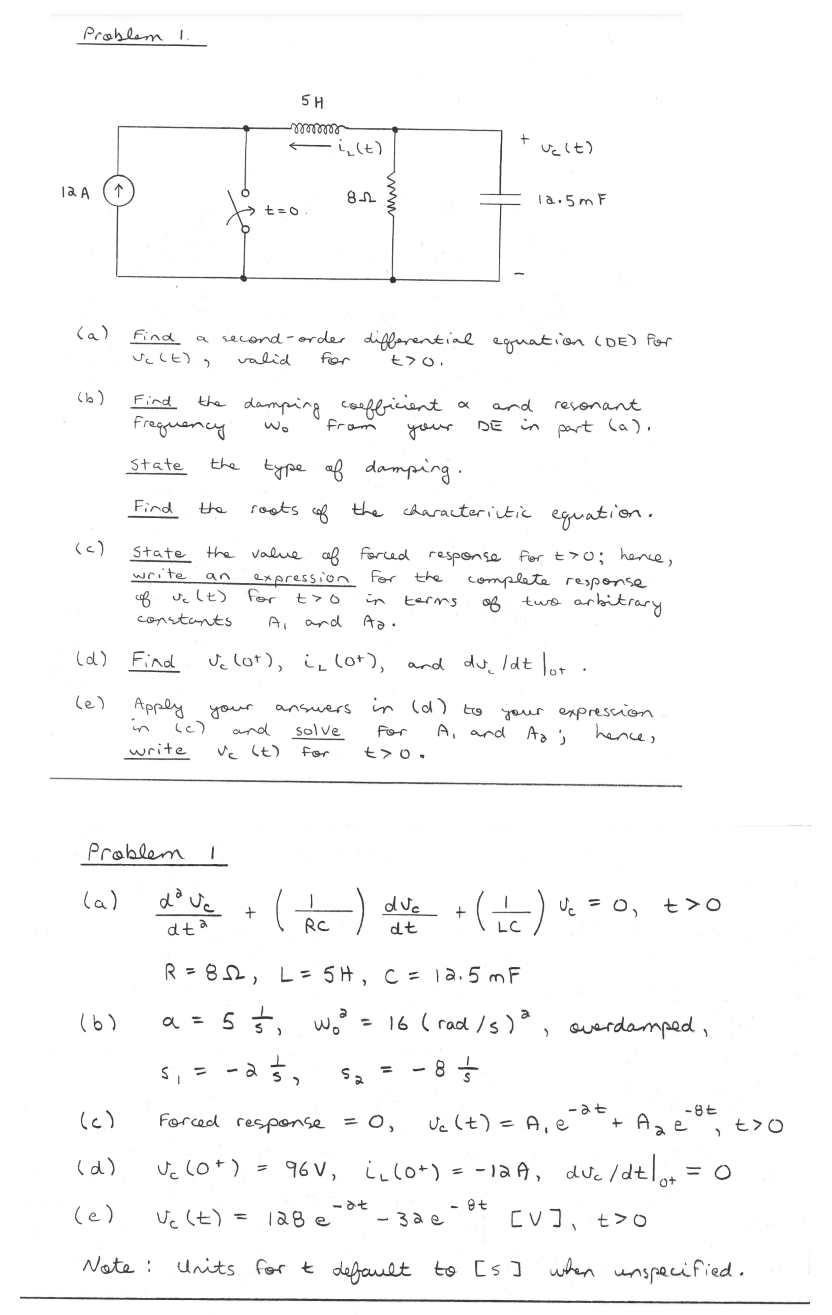 Problem 1.
5H
← i_L(t)
+ v_c(t)
12A
↑
t=0.
8Ω
12.5mF
−
(a) Find a second-order differential equation (DE) for
v_c(t), valid for t>0.
(b) Find the damping coefficient α and resonant
frequency ω₀ from your DE in part (a).
State the type of damping.
Find the roots of the characteristic equation.
(c) State the value of forced response for t>0; hence,
write an expression for the complete response
of v_c(t) for t>0 in terms of two arbitrary
constants A₁ and A₂.
(d) Find v_c(0⁺), i_L(0⁺), and dv_c/dt|₀₊.
(e) Apply your answers in (d) to your expression
in (c) and solve for A₁ and A₂; hence,
write v_c(t) for t>0.
Problem 1
(a) d²v_c/dt² + (1/RC) dv_c/dt + (1/LC) v_c = 0, t>0
R = 8Ω, L = 5H, C = 12.5mF
(b) α = 5 1/s, ω₀² = 16 (rad/s)², overdamped,
s₁ = -2 1/s, s₂ = -8 1/s
(c) Forced response = 0, v_c(t) = A₁e^(-2t) + A₂e^(-8t), t>0
(d) v_c(0⁺) = 96V, i_L(0⁺) = -12A, dv_c/dt|₀₊ = 0
(e) v_c(t) = 128e^(-2t) - 32e^(-8t) [V], t>0
Note: Units for t default to [s] when unspecified.